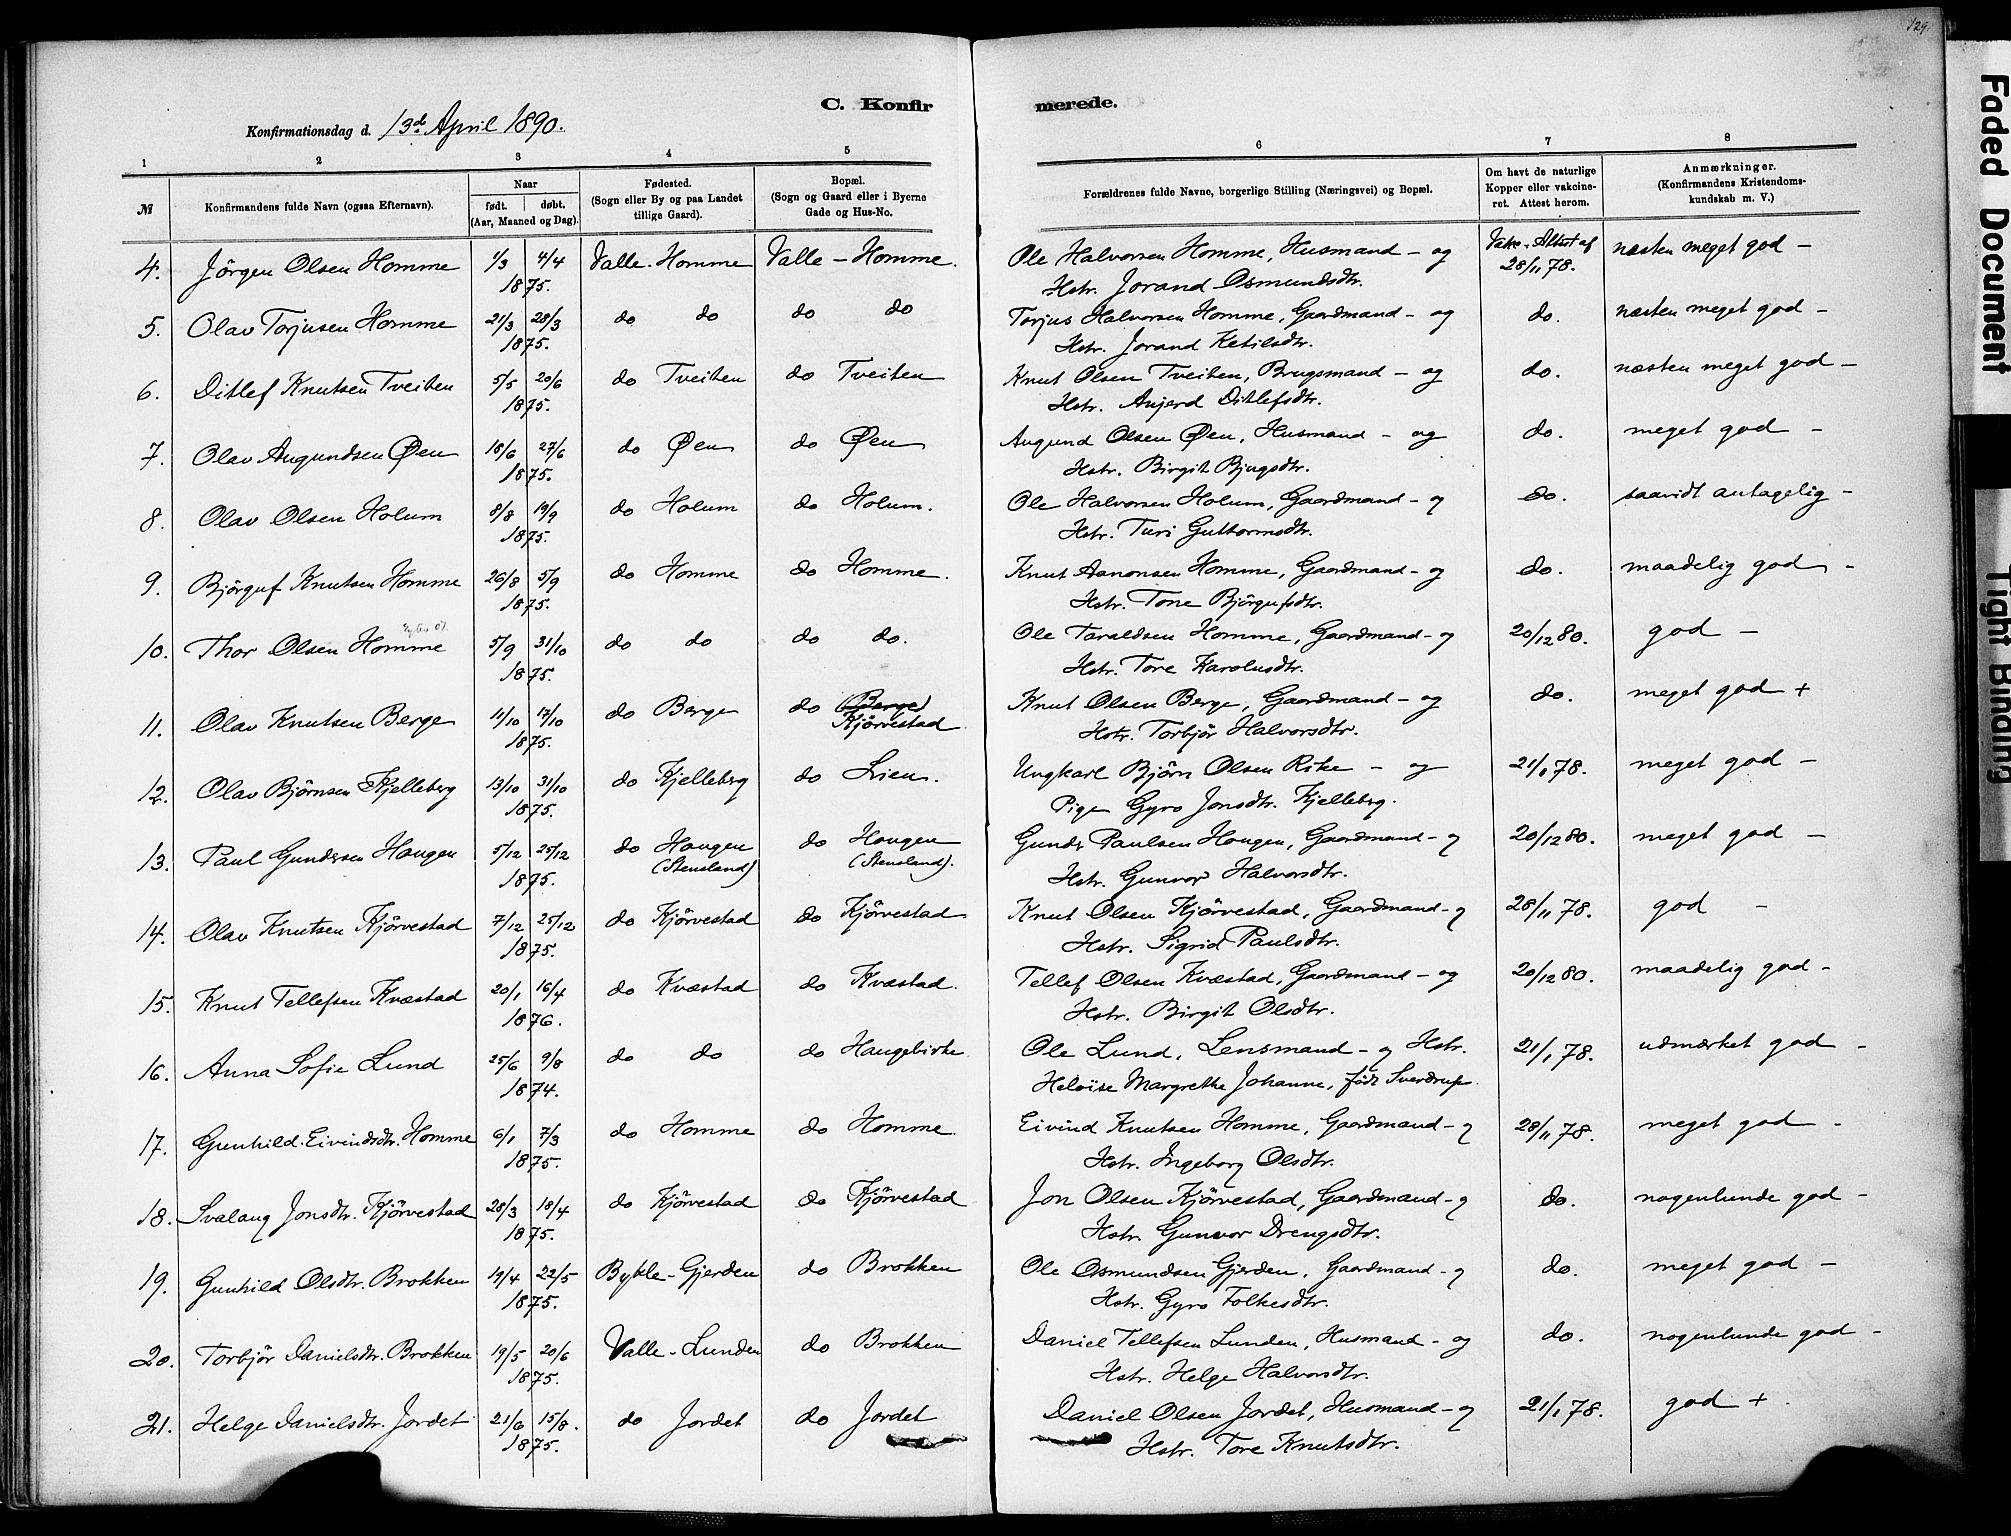 129.
C. Konfirmerede.
Konfirmationsdag d. 13d April 1890.
1 2 3 4 5 6 7 8
№ Konfirmandens fulde Navn (ogsaa Efternavn). Naar født. døbt. (Aar, Maaned og Dag). Fødested. (Sogn eller By og paa Landet tillige Gaard). Bopæl. (Sogn og Gaard eller i Byerne Gade og Hus-No. Forældrenes fulde Navne, borgerlige Stilling (Næringsvei) og Bopæl. Om havt de naturlige Kopper eller vakcineret. Attest herom. Anmærkninger. (Konfirmandens Kristendomskundskab m. V.)
4. Jörgen Olsen Homme 1/3 4/4 Valle - Homme Valle - Homme. Ole Halvorsen Homme, Husmand - og Vakc. Attest af næsten meget god -
1875. Hstr. Jorand Osmundsdtr. 28/11 78.
5. Olav Torjusen Homme 21/3 28/3 do do do do Torjus Halvorsen Homme, Gaardmand - og do. næsten meget god -
1875. Hstr. Jorand Ketilsdtr.
6. Ditlef Knutsen Tveiten 5/5 20/6 do Tveiten do Tveiten Knut Olsen Tveiten, Brugsmand - og do. næsten meget god -
1875. Hstr. Anjerd Ditlefsdtr.
7. Olav Augundsen Øen 18/6 27/6 do Øen do Øen Augund Olsen Øen, Husmand - og do. meget god -
1875. Hstr. Birgit Bjugsdtr.
8. Olav Olsen Holum 8/8 19/9 do Holum do Holum. Ole Halvorsen Holum, Gaardmand - og do. saavidt antagelig -
1875. Hstr. Turi Guttormsdtr.
9. Bjørguf Knutsen Homme 26/8 5/9 do Homme do Homme. Knut Aanonsen Homme, Gaardmand - og do. maadelig god -
1875. Hstr. Tone Björgufsdtr.
10. Thor Olsen Homme 5/9 31/10 do do do do. Ole Taraldsen Homme, Gaardmand - og 20/12 80. god -
1875. Hstr. Tore Karolusdtr.
11. Olav Knutsen Berge 11/10 17/10 do Berge do (Berge) Kjörvestad Knut Olsen Berge, Gaardmand - og do. meget god +
1875. Hstr. Torbjör Halvorsdtr.
12. Olav Bjørnsen Kjelleberg 13/10 31/10 do Kjelleberg do Lien. Ungkarl Bjørn Olsen Rike - og 21/1 78. meget god -
1875. Pige Gyro Jonsdtr. Kjelleberg.
13. Paul Gundersen Haugen 5/12 25/12 do Haugen (Stensland) do Haugen (Stensland). Gunder Paulsen Haugen, Gaardmand - og 20/12 80. meget god -
1875. Hstr. Gunvor Halvorsdtr.
14. Olav Knutsen Kjörvestad 7/12 25/12 do Kjörvestad do Kjörvestad Knut Olsen Kjörvestad, Gaardmand - og 28/11 78. god -
1875. Hstr. Sigrid Paulsdtr.
15. Knut Tellefsen Kvæstad 20/1 16/4 do Kvæstad do Kvæstad. Tellef Olsen Kvæstad, Gaardmand - og 20/12 80. maadelig god -
1876. Hstr. Birgit Olsdtr.
16. Anna Sofie Lund 25/6 9/8 do do do Haugebirke Ole Lund, Lensmand - og Hstr. 21/1 78. udmærket god -
1874. Heloise Margrethe Johanne, født Sverdrup.
17. Gunhild Eivindsdtr. Homme 6/1 7/3 do Homme do Homme Eivind Knutsen Homme, Gaardmand - og 28/11 78. meget god -
1875. Hstr. Ingeborg Olsdtr.
18. Svalaug Jonsdtr. Kjörvestad 28/3 18/4 do Kjörvestad do Kjörvestad Jon Olsen Kjörvestad, Gaardmand - og do. nogenlunde god -
1875. Hstr. Gunvor Drengsdtr.
19. Gunhild Olsdtr. Brokken 19/4 22/5 Bykle - Gjerden do Brokken Ole Osmundsen Gjerden, Gaardmand - og do. meget god -
1875. Hstr. Gyro Folkesdtr.
20. Torbjör Danielsdtr. Brokken 19/5 20/6 Valle - Lunden do Brokken Daniel Tellefsen Lunden, Husmand - og do. nogenlunde god -
1875. Hstr. Helge Halvorsdtr.
21. Helge Danielsdtr. Jordet 21/6 15/8. do Jordet do Jordet Daniel Olsen Jordet, Husmand - og 21/1 78. god +
1875. Hstr. Tore Knutsdtr.
Faded Document
Tight Binding